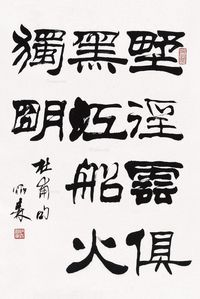 野徑雲俱
黑江船火
獨明
杜甫句
炳森